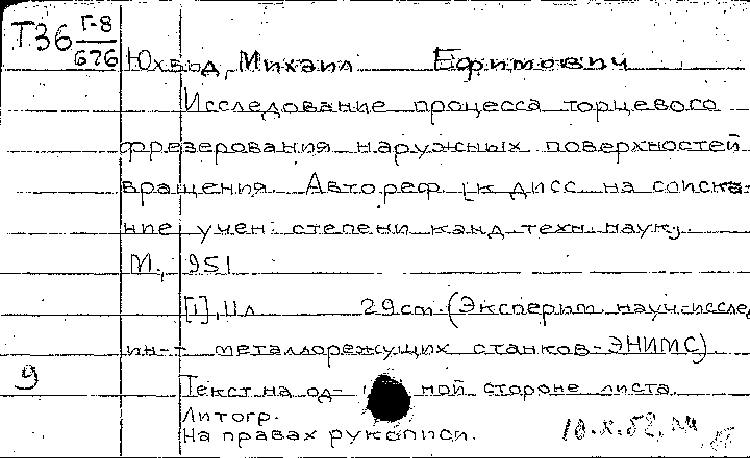 Т36 Г-8
676
Юхвид, Михаил Ефимович
Исследование процесса торцевого
фрезерования наружных поверхностей
вращения. Автореф. [к дисс. на соиска-
ние учен. степени канд. техн. наук].
М., 1951
[1], 11 л. 29 см. (Эксперим. науч.-исслед.
ин-т металлорежущих станков-ЭНИМС)
9
Текст на од- ной стороне листа.
Литогр.
На правах рукописи.
10.X.52.